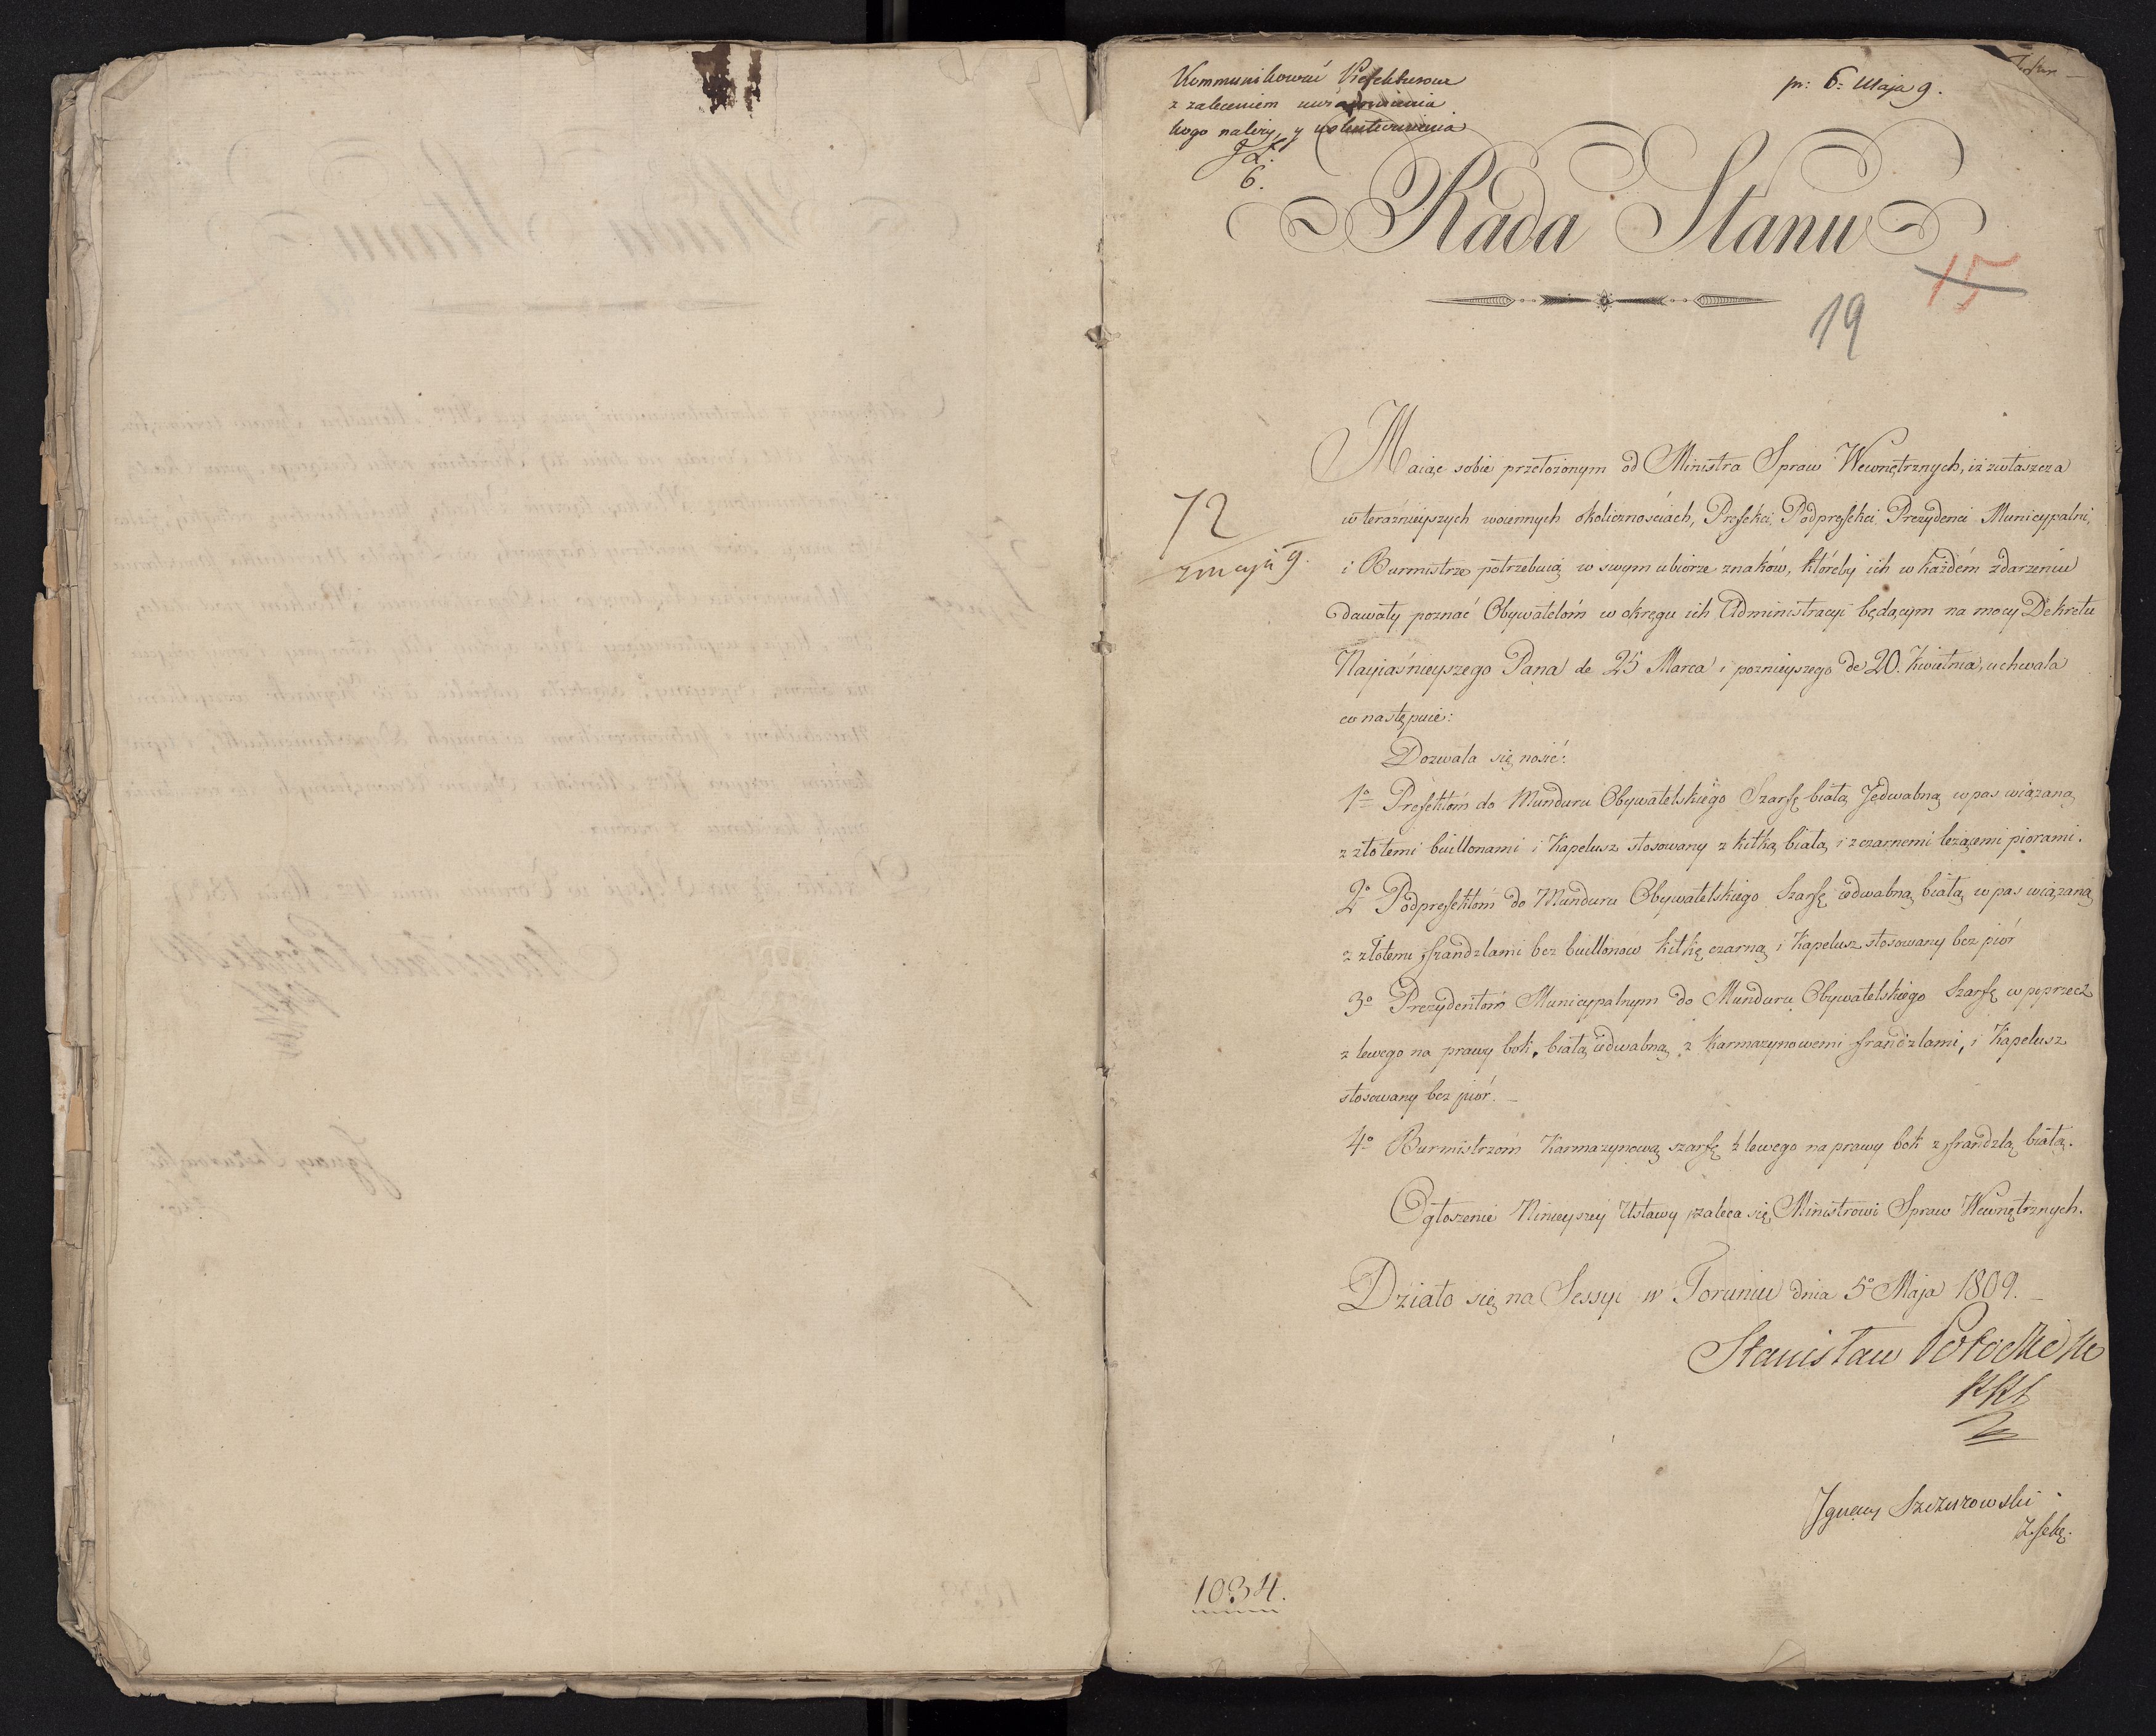 Kommunikować Prefektusom
z zaleceniem uwiadomienia
kogo należy, y uskutecznienia
6.
pr: 6: Maja 9.
Rada Stanu
15
19
72
z maja 9.
Maiąc sobie przełożonym od Ministra Spraw Wewnętrznych, iż zwłaszcza
w teraźnieyszych woiennych okolicznościach, Prefekci, Podprefekci Prezydenci Municypalni,
i Burmistrze potrzebuią w swym ubiorze znaków, któreby ich w każdém zdarzeniu
dawały poznać Obywatelom w okręgu ich Administracyi będącym na mocy Dekretu
Nayiaśnieyszego Pana de 25 Marca i poznieyszego de 20. Kwietnia, uchwala
co następuie:
Dozwala się nosić:
1º Prefektóm do Munduru Obywatelskiego Szarfę białą Jedwabną w pas wiązaną
z złotemi buillonami i Kapelusz stosowany z kitką białą i z czarnemi leżącemi piorami.
2º Podprefektóm do Munduru Obywatelskiego Szarfę iedwabną białą w pas wiązaną
z złotemi frandzlami bez buillonow kitkę czarną i Kapelusz stosowany bez piór
3º Prezydentom Municypalnym do Munduru Obywatelskiego Szarfę w poprzecz
z lewego na prawy bok, białą iedwabną z karmazynowemi frandzlami, i Kapelusz
stosowany bez piór. –
4º Burmistrzom Karmazynową szarfę z lewego na prawy bok z frandzlą białą.
Ogłoszenie Ninieyszey Ustawy zaleca się Ministrowi Spraw Wewnętrznych.
Działo się na Sessyi w Toruniu dnia 5º Maja 1809. –
Stanisław Potocki
Ignacy Szczurowski
1034.